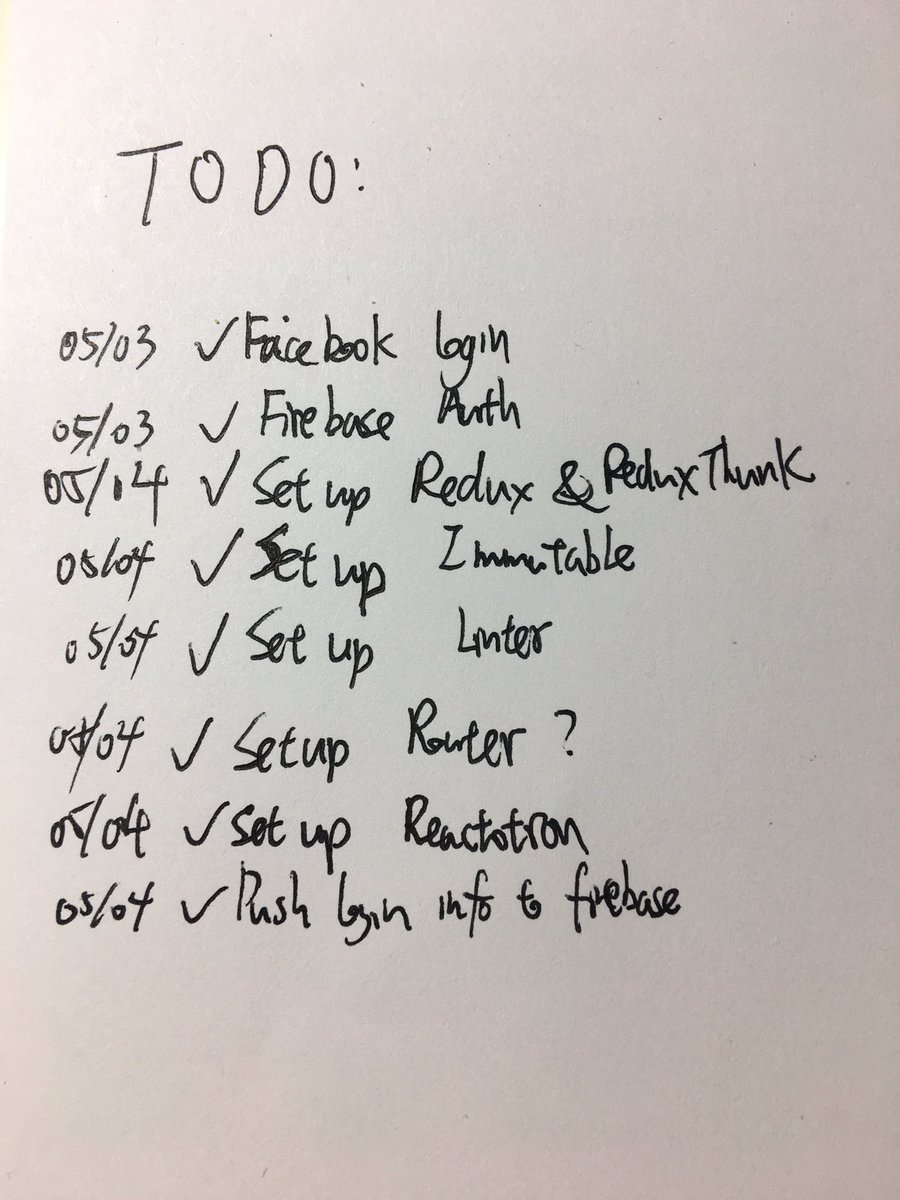 TODO:
05/03 ✓ Facebook login
05/03 ✓ Firebase Auth
05/04 ✓ Set up Redux & Redux Thunk
05/04 ✓ Set up Immutable
05/04 ✓ Set up Linter
05/04 ✓ Setup Router ?
05/04 ✓ Set up Reactotron
05/04 ✓ Push login info to firebase